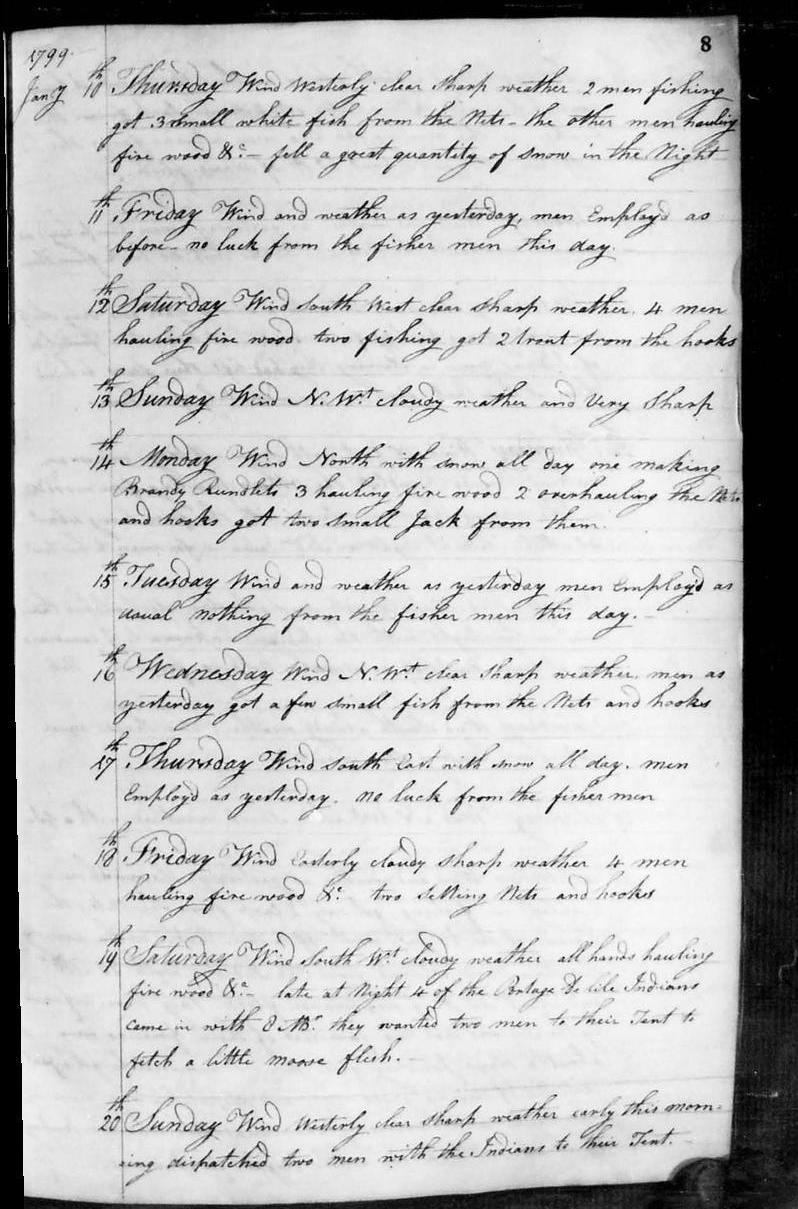 8
1799
Jany 10th Thursday Wind Westerly clear sharp weather 2 men fishing
got 3 small white fish from the Nets - the other men hauling
fire wood &c - fell a great quantity of snow in the Night
11th Friday Wind and weather as yesterday, men Employd as
before - no luck from the fisher men this day.
12th Saturday Wind South West clear sharp weather. 4 men
hauling fire wood two fishing got 2 trout from the hooks
13th Sunday Wind N. Wt cloudy weather and Very Sharp
14th Monday Wind North with snow all day one making
Brandy Rundlets 3 hauling fire wood 2 overhauling the Nets
and hooks got two small Jack from them.
15th Tuesday Wind and weather as yesterday men Employd as
usual nothing from the fisher men this day. -
16th Wednesday Wind N. Wt clear sharp weather. men as
yesterday got a few small fish from the Nets and hooks
17th Thursday Wind South East with snow all day. men
Employd as yesterday. no luck from the fisher men
18th Friday Wind Easterly cloudy sharp weather 4 men
hauling fire wood &c two setting Nets and hooks
19th Saturday Wind South Wt cloudy weather all hands hauling
fire wood &c - late at Night 4 of the Portage De Lile Indians
came in with 8 MBr they wanted two men to their Tent to
fetch a little moose flesh. -
20th Sunday Wind Westerly clear sharp weather early this morn=
ing dispatched two men with the Indians to their Tent. -